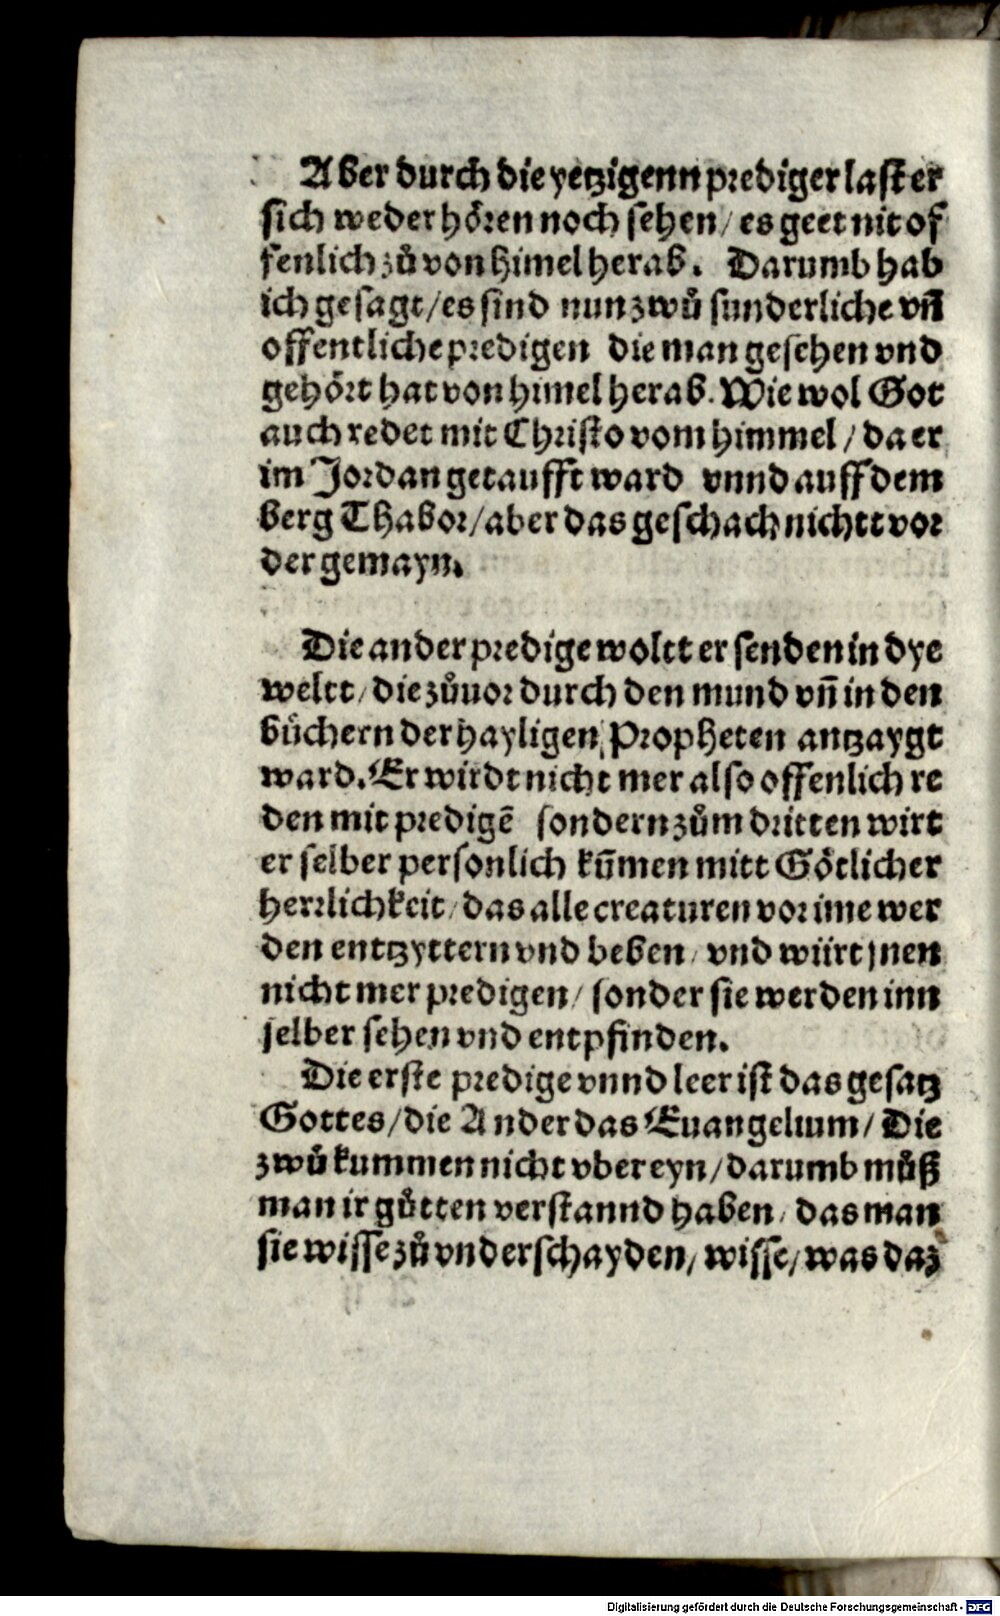 Aber durch die yetzigenn prediger last er
sich weder hören noch sehen/ es geet nit of
fenlich zů von himel herab. Darumb hab
ich gesagt/ es sind nun zwů sunderliche vñ
offentliche predigen die man gesehen vnd
gehört hat von himel herab. Wie wol Got
auch redet mit Christo vom himmel/ da er
im Jordan getaufft ward vnnd auff dem
berg Thabor/ aber das geschach nichtt vor
der gemayn.
Die ander predige woltt er senden in dye
weltt/ die zůuor durch den mund vñ in den
büchern der hayligen Propheten antzaygt
ward. Er wirdt nicht mer also offenlich re
den mit predigē sondern zům dritten wirt
er selber personlich kum̄en mitt Götlicher
herrlichkeit/ das alle creaturen vor ime wer
den enttzyttern vnd beben/ vnd würt jnen
nicht mer predigen/ sonder sie werden inn
selber sehen vnd entpfinden.
Die erste predige vnnd leer ist das gesatz
Gottes/ die Ander das Euangelium/ Die
zwů kummen nicht vber eyn/ darumb můß
man ir gůtten verstannd haben/ das man
sie wisse zů vnderschayden/ wisse/ was daz
Digitalisierung gefördert durch die Deutsche Forschungsgemeinschaft - DFG